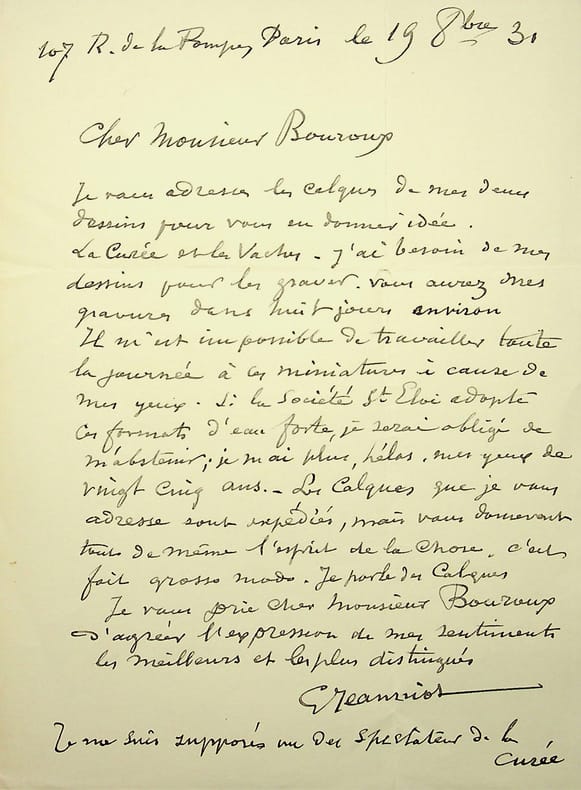 107 R. de la Pompe, Paris le 19 8bre 31
Cher Monsieur Bouroux
Je vous adresse les calques de mes deux
dessins pour vous en donner idée.
La Curée et les Vaches - j'ai besoin de mes
dessins pour les graver. Vous aurez mes
gravures dans huit jours environ
Il m'est impossible de travailler toute
la journée à ces miniatures à cause de
mes yeux. Si la Société St Eloi adopte
ces formats d'eau forte, je serai obligé de
m'abstenir; je n'ai plus, hélas, mes yeux de
vingt cinq ans. - Les Calques que je vous
adresse sont expédiés, mais vous donneront
tout de même l'esprit de la chose. c'est
fait grosso modo. Je parle des Calques
Je vous prie cher Monsieur Bouroux
d'agréer l'expression de mes sentiments
les meilleurs et les plus distingués
GJeanniot
Je me suis supposés un des spectateur de la
curée